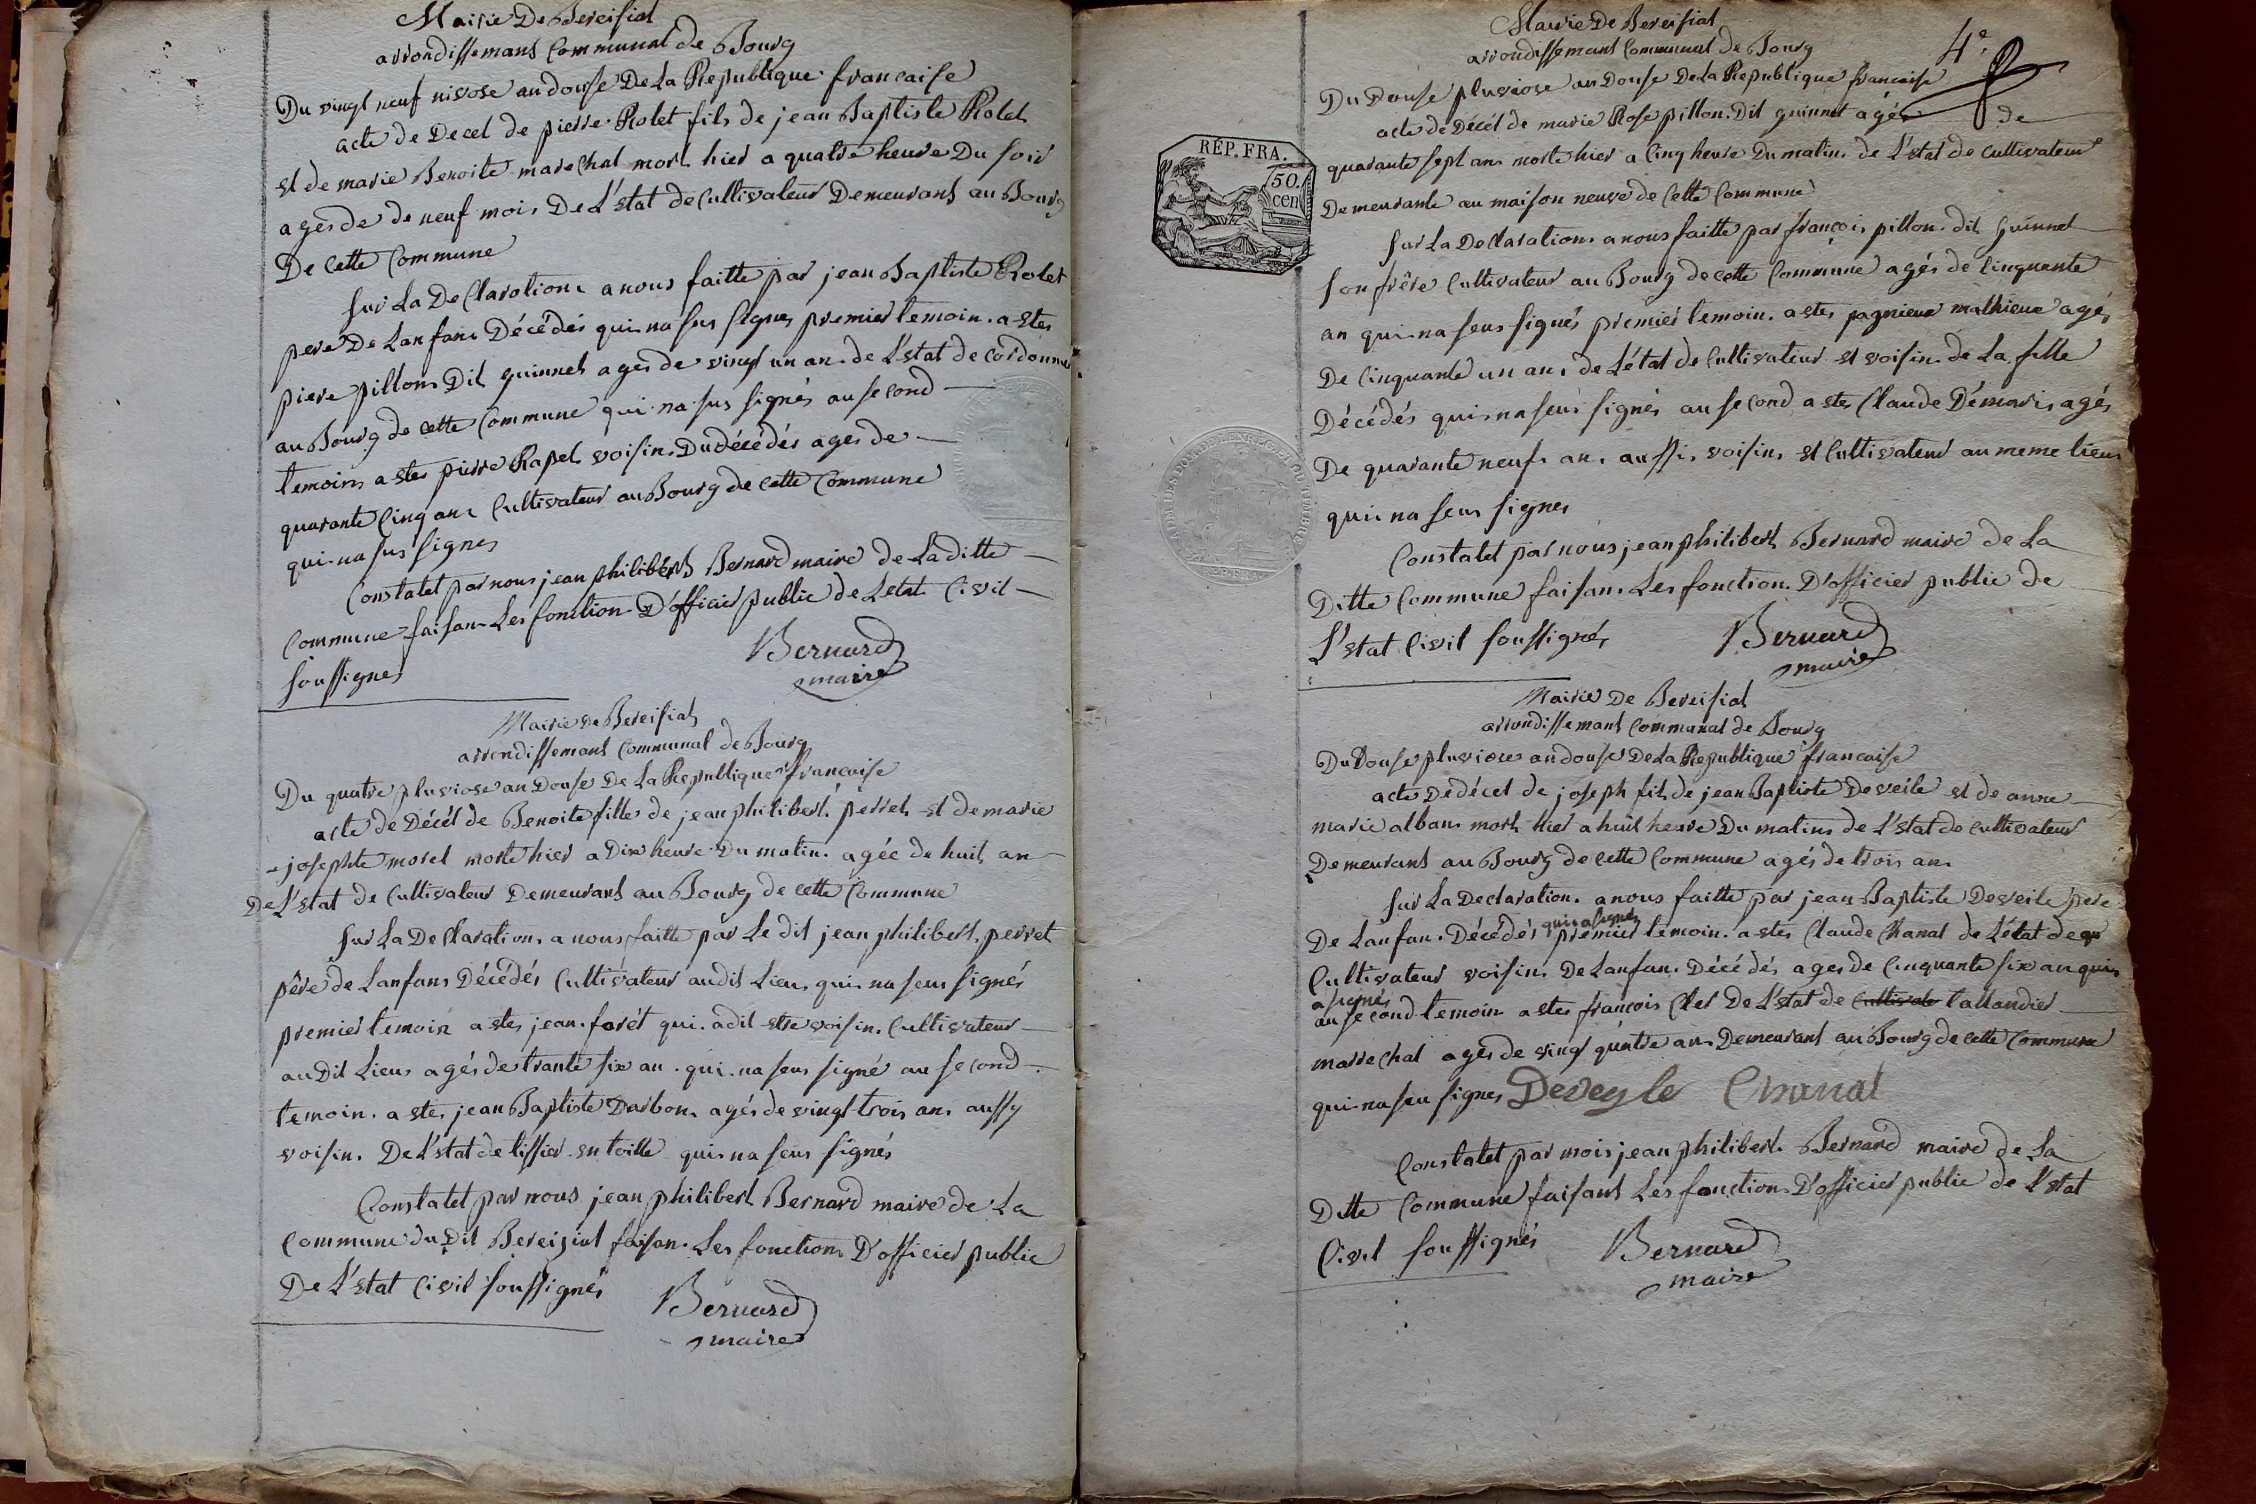 Mairie De Bereisiat
arrondissemant Communal de Bourg
Du vingt neuf nivose an douse De La Republique francaise
acte de Decet de pierre Rolet fils de jean Baptiste Rolet
et de marie Benoite marechal mort hier a quatre heure Du soir
agés de de neuf mois De L'etat de Cultivateur Demeurant au Bourg
De cette Commune
sur La Declaration a nous faitte par jean Baptiste Rolet
pere De Lanfan Décédés qui na sus signes premier temoin a etes
piere pillon Dit guinnet ages de vingt un an de L'etat de Cordonnie
au Bourg de cette Commune qui na sus signés au second
temoin a etes pierre Rapet voisin Du décédés ages de
quarante Cinq an Cultivateur au Bourg de cette Commune
qui na sus signes
Constatet par nous jean philibert Bernard maire de La ditte
Commune faisan Les fonction D'officier public de Letat Civil
soussignes
Bernard
maire
Mairie De Bereisiat
arrondissemant Communal de Bourg
Du quatre pluviose an Douse De La Republique francaise
acte de Décét de Benoite fille de jean philibert perret et de marie
josephte morel morte hier a Dix heure Du matin agée de huit an
De L'etat de Cultivateur Demeurant au Bourg de cette Commune
sur La Declaration a nous faitte par Le dit jean philibert perret
pêre de Lanfan Décédés Cultivateur audit Lieu qui na seus signés
premier temoin a etes jean forêt qui a dit etre voisin Cultivateur
au Dit Lieu agés de trante six an qui na seus signé au second
temoin a etes jean Baptiste Darbon agés de vingt trois an aussy
voisin De L'etat de tissier en toille qui na seus signés
Constatet par nous jean philibert Bernard maire de La
Commune du Dit Bereiziat faisan Les fonction D'officier public
De L'etat Civil soussignés
Bernard
maire
4e
Mairie De Bereisiat
arrondissemant Communal de Bourg
Du Douse pluviose an Douse De La Republique francaise
acte de Décét de marie Rose pillon Dit guinnet agés de
RÉP. FRA.
50.
cen
quarante sept an morte hier a Cinq heure Du matin de L'etat de Cultivateur
Demeurante au maison neuve de Cette Commune
sur La Declaration a nous faitte par françois pillon dit Guinnet
son frêre Cultivateur au Bourg de cette Commune agés de Cinquante
an qui na seus signés premier temoin a etes pagnieux mathieue agés
De Cinquante un an de L'état de Cultivateur et voisin de La fille
Décédés qui na seus signés au second a etes Claude Démaris agés
De quarante neuf an aussi voisin et Cultivateur au meme Lieu
qui na seus signes
Constatet par nous jean philibert Bernard maire de La
Ditte Commune faisan Les fonction D'officier public de
L'etat Civil soussignés
Bernard
maire
Mairie De Bereisiat
arrondissemant Communal de Bourg
Du Douse pluviose an douse De La Republique francaise
acte De décet de joseph fils de jean Baptiste Deveile et de anne
marie alban mort hier a huit heure Du matin de L'etat de Cultivateur
Demeurant au Bourg de cette Commune agés de trois an
sur La Declaration a nous faitte par jean Baptiste Deveile pere
De Lanfan Décédés qui a signés premier temoin a etes Claude Chanal de L'état de
Cultivateur voisin De Lanfan Décédés ages de Cinquante six an qui
a signés
au second temoin a etes françois Cler De L'etat de Cultivate tallandier
marrechal agés de vingt quatre an Demeurant au Bourg de cette Commune
qui na seu signes Deveyle Chanal
Constatet par mois jean philibert Bernard maire de La
Ditte Commune faisant Les fonction D'officier public de L'etat
Civil soussignés
Bernard
maire